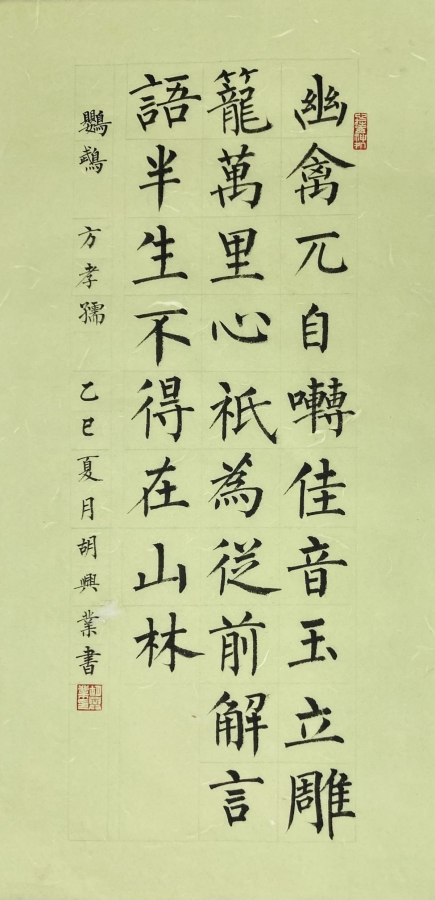 幽禽兀自囀佳音玉立雕
籠萬里心祇為從前解言
語半生不得在山林
鸚鵡 方孝孺 乙巳夏月胡興業書